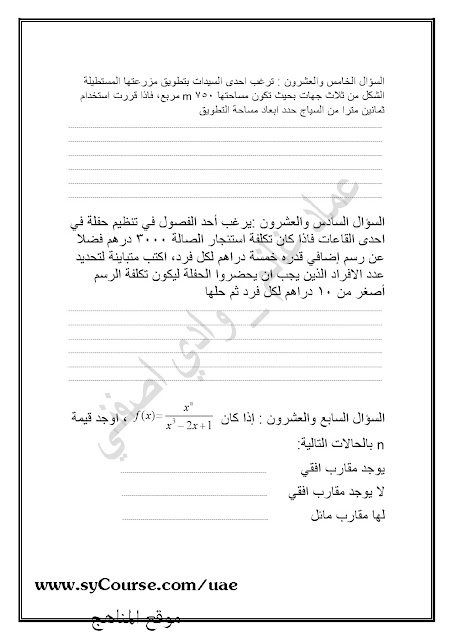 السؤال الخامس والعشرون : ترغب احدى السيدات بتطويق مزرعتها المستطيلة
الشكل من ثلاث جهات بحيث تكون مساحتها ٧٥٠ m مربع، فاذا قررت استخدام
ثمانين مترا من السياج حدد ابعاد مساحة التطويق
السؤال السادس والعشرون :يرغب أحد الفصول في تنظيم حفلة في
احدى القاعات فاذا كان تكلفة استئجار الصالة ٣٠٠٠ درهم فضلا
عن رسم إضافي قدره خمسة دراهم لكل فرد، اكتب متباينة لتحديد
عدد الافراد الذين يجب ان يحضروا الحفلة ليكون تكلفة الرسم
أصغر من ١٠ دراهم لكل فرد ثم حلها
السؤال السابع والعشرون : إذا كان f(x)= x^n / x^3−2x+1 ، اوجد قيمة
n بالحالات التالية:
يوجد مقارب افقي
لا يوجد مقارب افقي
لها مقارب مائل
www.syCourse.com/uae
موقع المناهج